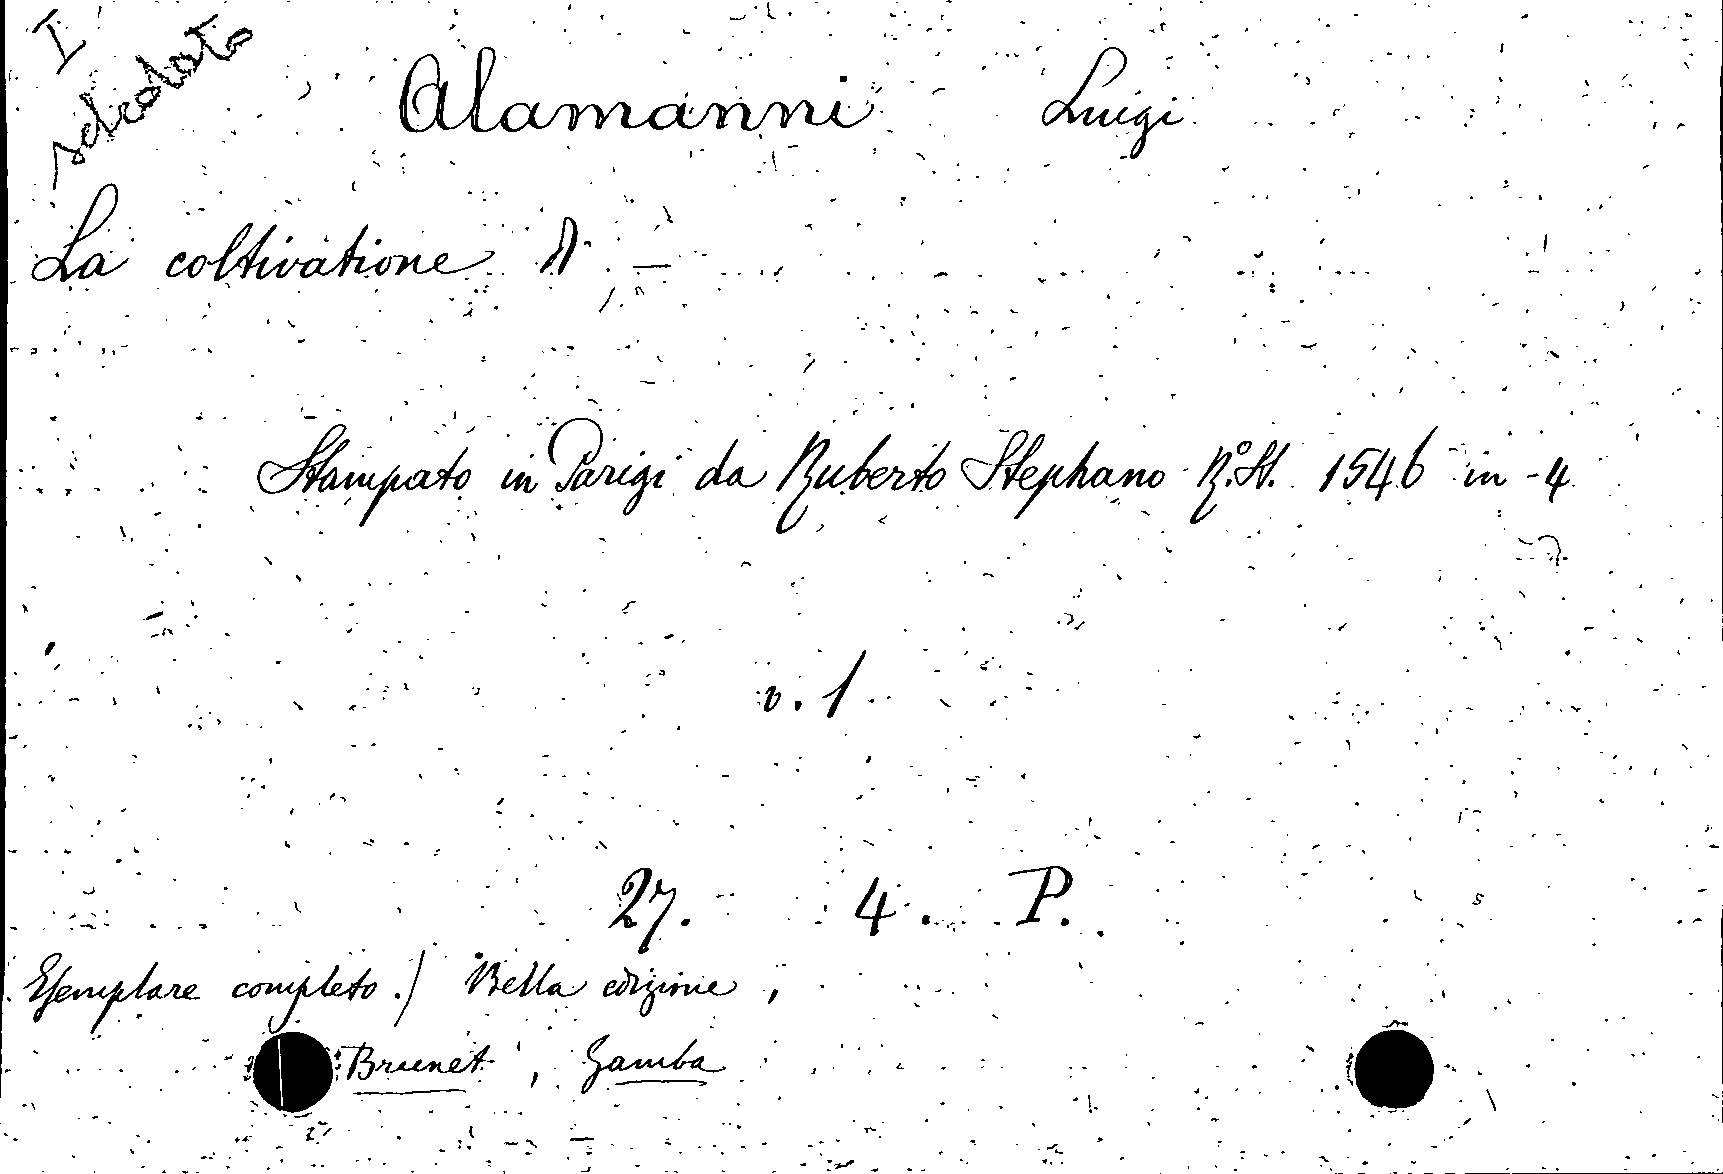 I
schedato
Alamanni Luigi
La coltivatione
Stampato in Parigi da Ruberto Stephano R.º St. 1546 in-4
v. 1
27. 4. P.
Esemplare completo.) Bella edizione,
Brunet, Gamba